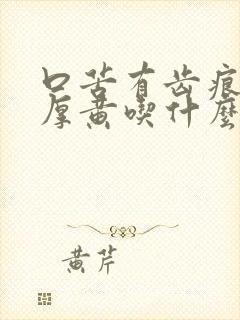 口苦有齿痕
厚黄喫什麼
黄芹